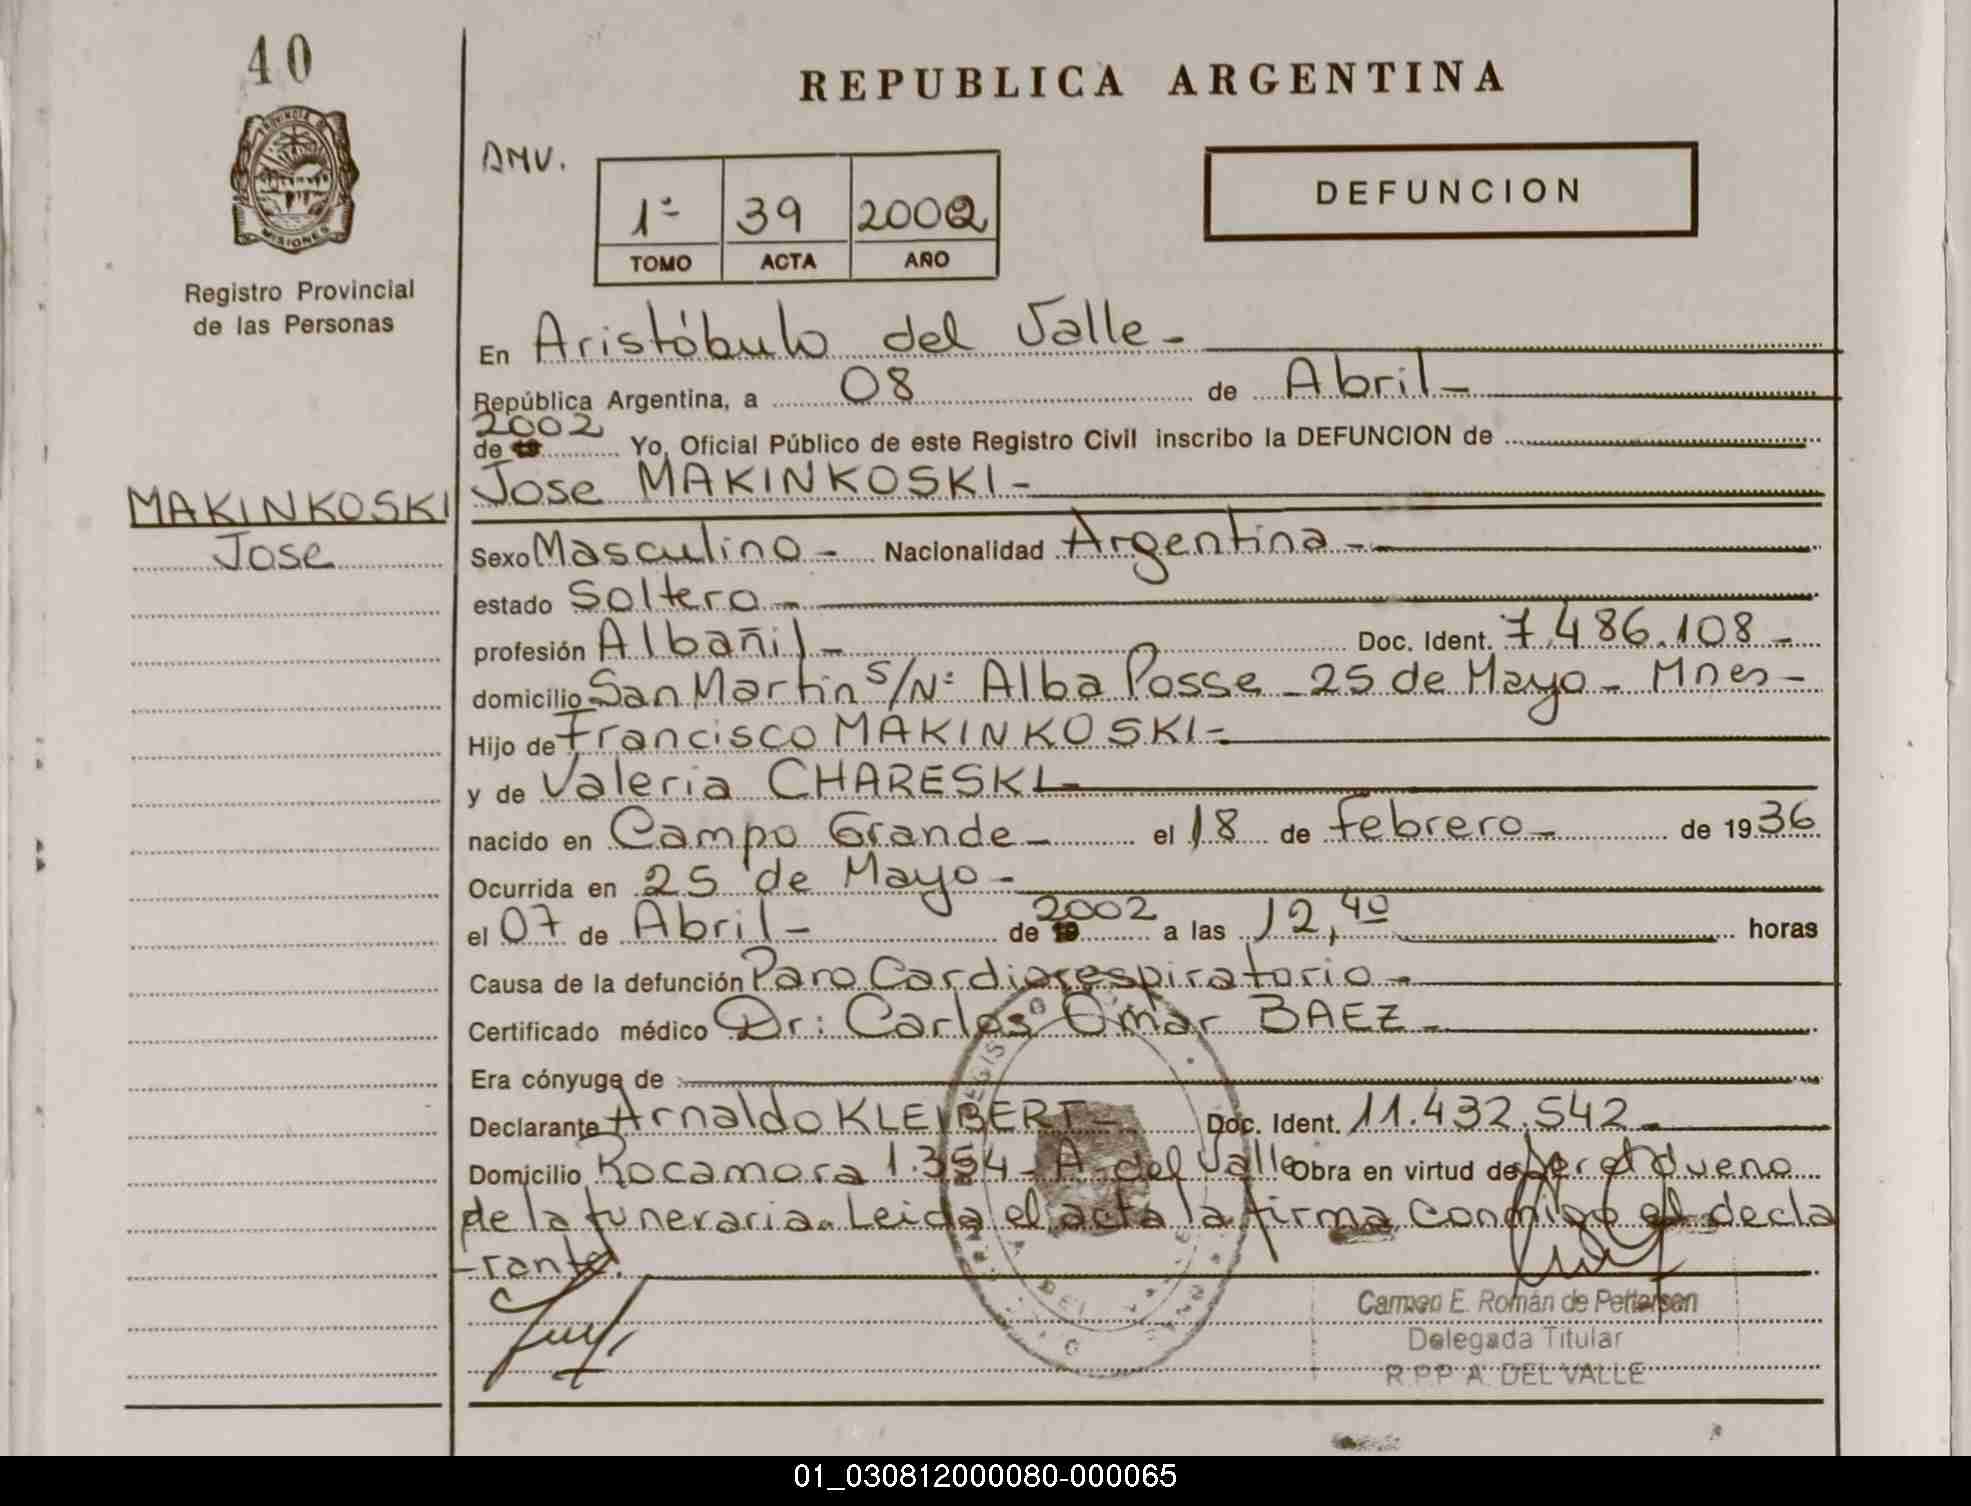 40
REPUBLICA ARGENTINA
PROVINCIA DE
MISIONES
Registro Provincial
de las Personas
AMV.
1º 39 2002
TOMO ACTA AÑO
DEFUNCION
En Aristóbulo del Valle-
República Argentina, a 08 de Abril-
2002
de 19 Yo, Oficial Público de este Registro Civil inscribo la DEFUNCION de
Jose MAKINKOSKI-
MAKINKOSKI
Jose
Sexo Masculino- Nacionalidad Argentina-
estado Soltero-
profesión Albañil- Doc. Ident. 7.486.108-
domicilio San Martin S/Nº Alba Posse - 25 de Mayo - Mnes-
Hijo de Francisco MAKINKOSKI-
y de Valeria CHARESKI-
nacido en Campo Grande- el 18 de febrero- de 1936
Ocurrida en 25 de Mayo-
el 07 de Abril- de 19 2002 a las 12,40 horas
Causa de la defunción Paro Cardiorespiratorio-
Certificado médico Dr: Carlos Omar BAEZ-
Era cónyuge de
Declarante Arnaldo KLEIBERT- Doc. Ident. 11.432.542-
Domicilio Rocamora 1.354- A. del Valle Obra en virtud de ser el dueno
de la funeraria. Leida el acta la firma conmigo el decla
-rante.
Carmen E. Román de Pettersen
Delegada Titular
R.P.P A. DEL VALLE
01_030812000080-000065